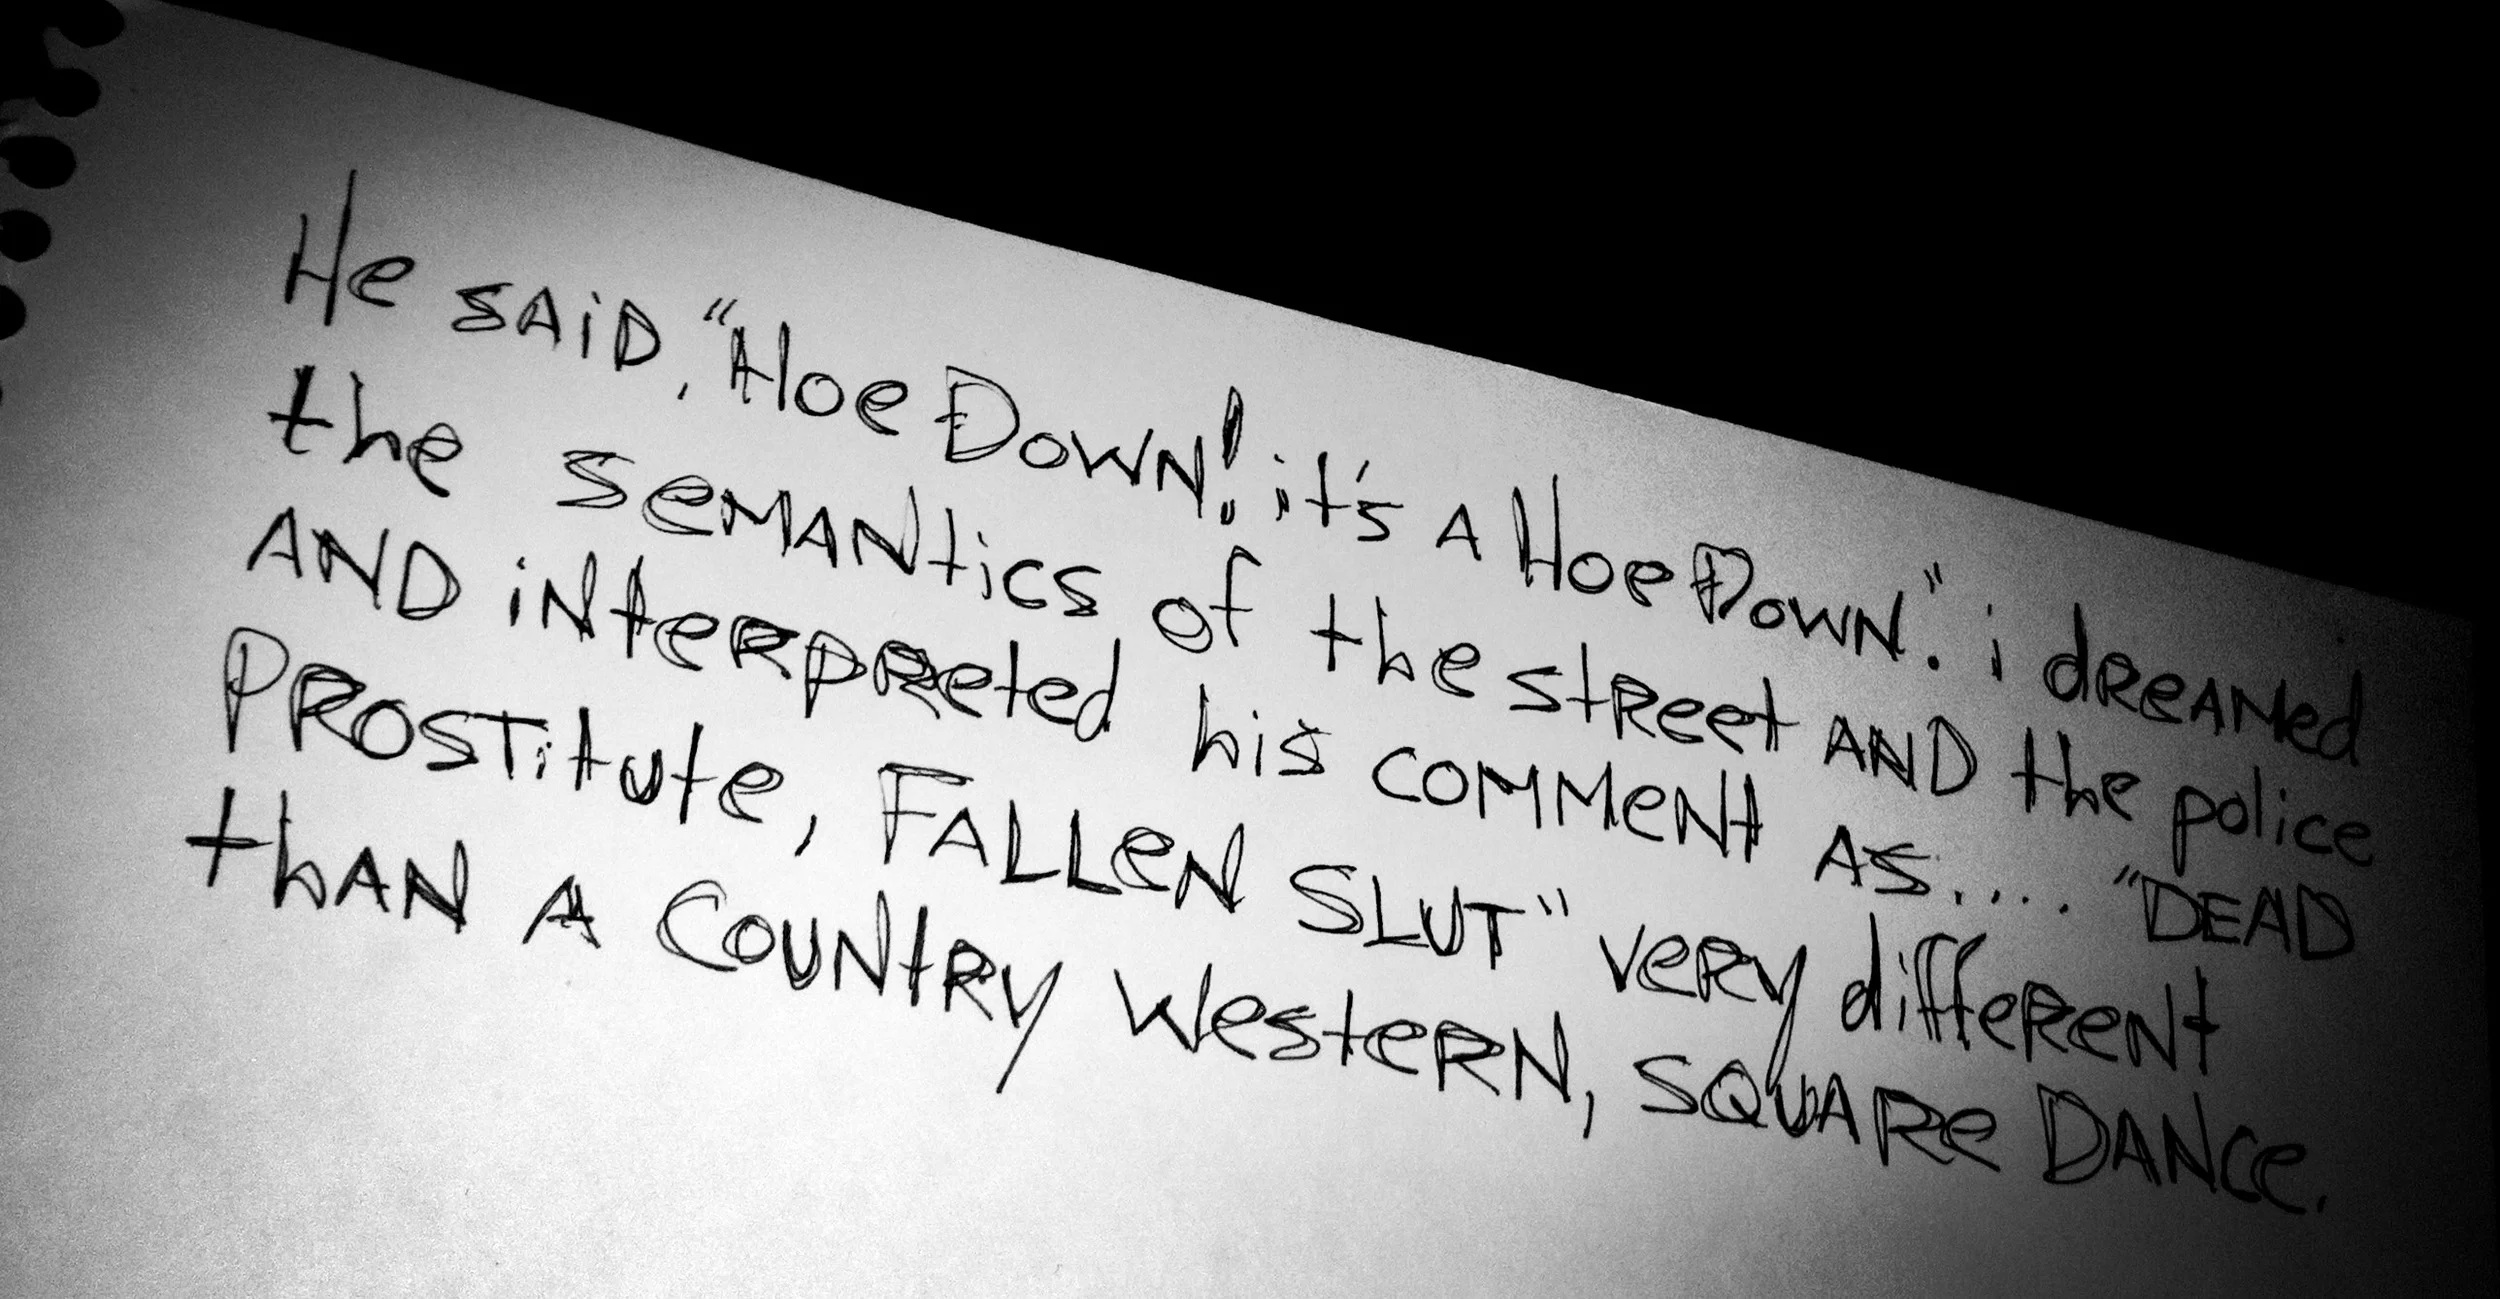 He said, "Hoe Down! it's a Hoe Down." i dreamed
the semantics of the street and the police
and interpreted his comment as.... "DEAD
Prostitute, Fallen Slut" very different
than a Country Western, Square Dance.